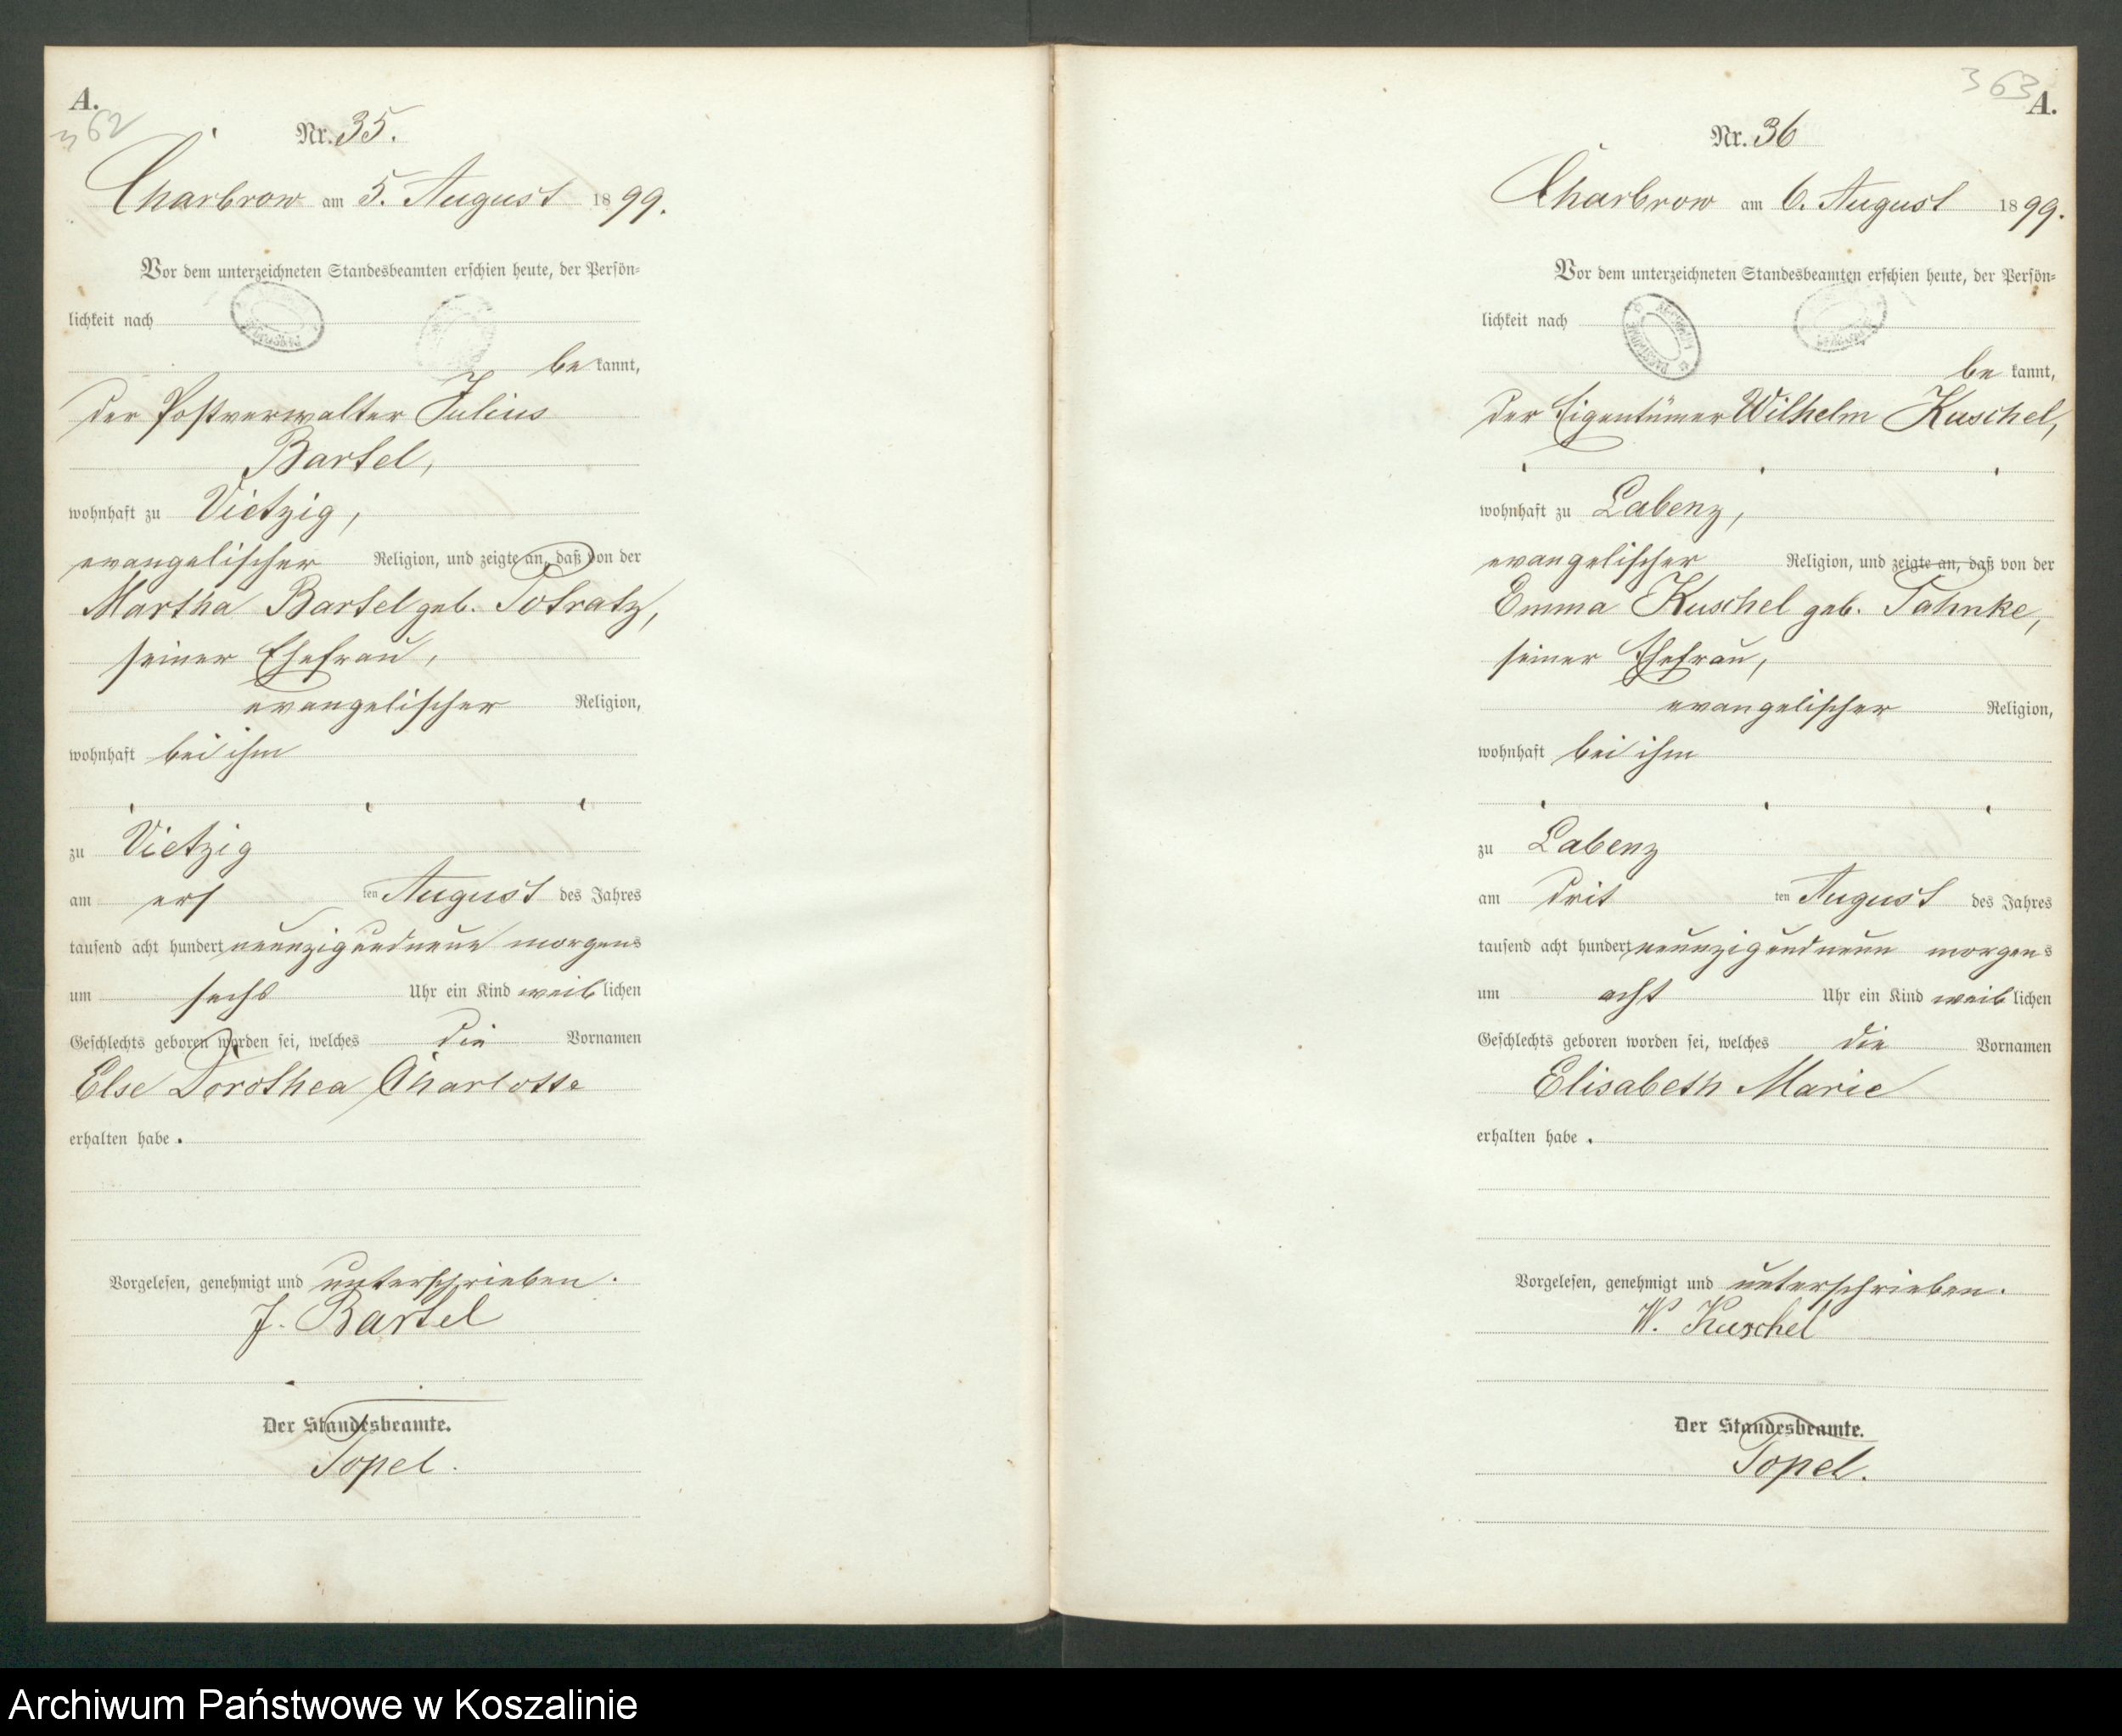 A.
362
Nr. 35.
Charbrow am 5. August 1899.
Vor dem unterzeichneten Standesbeamten erschien heute, der Persön-
lichkeit nach
be kannt,
der Postverwalter Julius
Bartel,
wohnhaft zu Vietzig,
evangelischer Religion, und zeigte an, daß von der
Martha Bartel geb. Potratz,
seiner Ehefrau,
evangelischer Religion,
wohnhaft bei ihm
zu Vietzig
am erſ ten August des Jahres
tausend acht hundert neunzigundneun morgens
um sechs Uhr ein Kind weib lichen
Geschlechts geboren worden sei, welches die Vornamen
Else Dorothea Charlotte
erhalten habe.
Vorgelesen, genehmigt und unterschrieben.
J. Bartel
Der Standesbeamte.
Topel.
363
A.
Nr. 36
Charbrow am 6. August 1899.
Vor dem unterzeichneten Standesbeamten erschien heute, der Persön-
lichkeit nach
be kannt,
der Eigentümer Wilhelm Kuschel,
wohnhaft zu Labenz,
evangelischer Religion, und zeigte an, daß von der
Emma Kuschel geb. Jahnke,
seiner Ehefrau,
evangelischer Religion,
wohnhaft bei ihm
zu Labenz
am drit ten August des Jahres
tausend acht hundert neunzigundneun morgens
um acht Uhr ein Kind weib lichen
Geschlechts geboren worden sei, welches die Vornamen
Elisabeth Marie
erhalten habe.
Vorgelesen, genehmigt und unterschrieben.
W. Kuschel
Der Standesbeamte.
Topel.
Archiwum Państwowe w Koszalinie